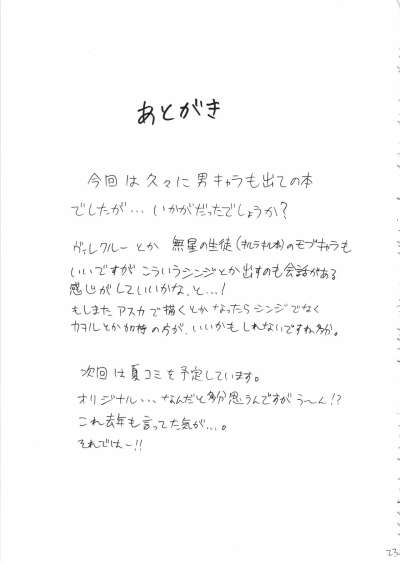 あとがき
今回は久々に男キャラも出ての本
でしたが… いかがだったでしょうか?
ヴィレクルーとか 無星の生徒(キルラキル本)のモブキャラも
いいですが こういうシンジとか出すのも会話がある
感じがしていいかな、と…!
もしまた アスカで描くとかなったらシンジでなく
カヲルとか加持の方が、いいかもしれないですね多分。
次回は夏コミを予定しています。
オリジナル… なんだと多分思うんですが う〜ん!?
これ去年も言ってた気が…。
それではー!!
23